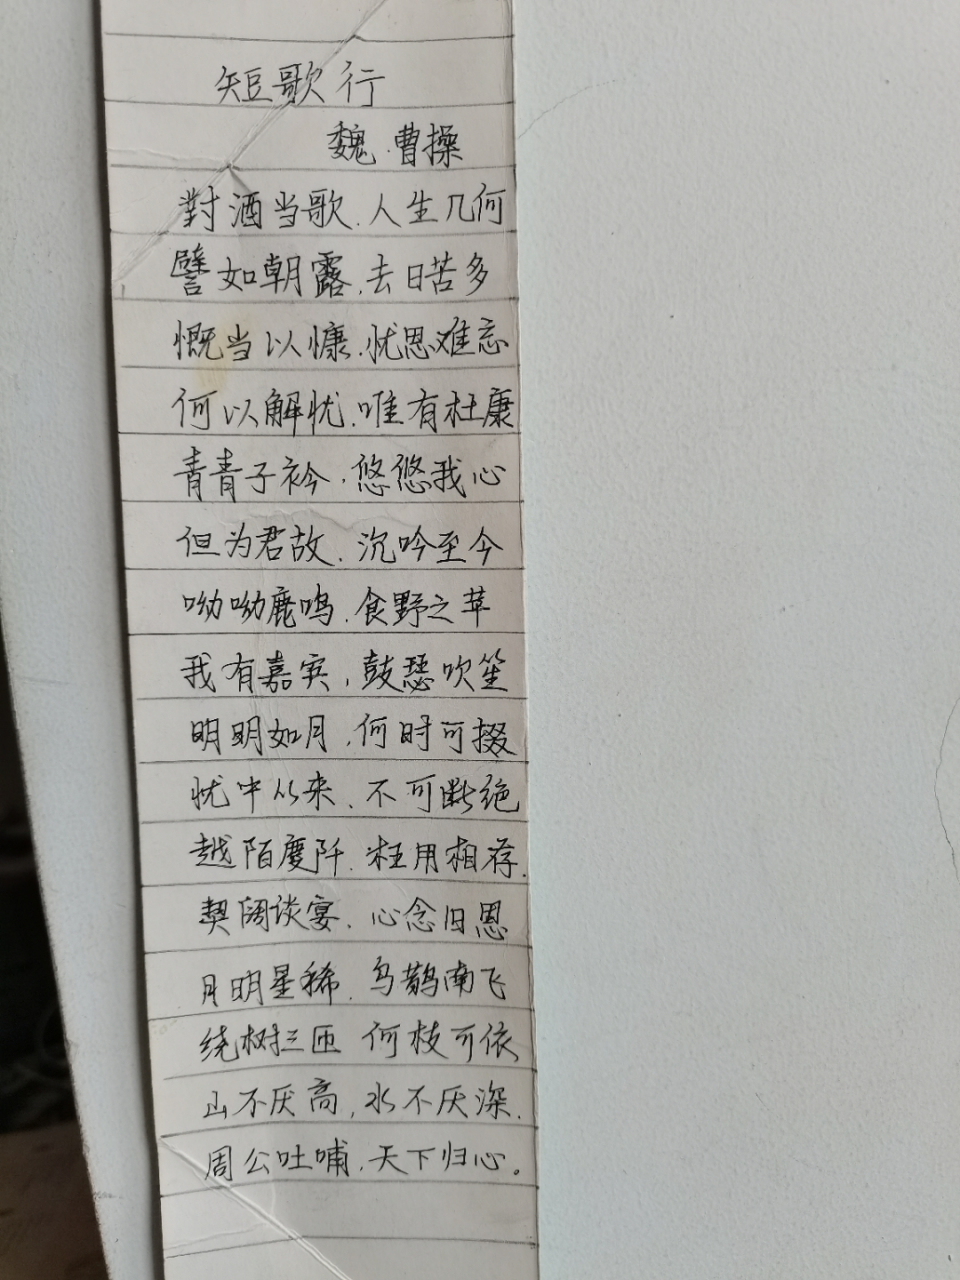 短歌行
魏·曹操
對酒当歌.人生几何
譬如朝露.去日苦多
慨当以慷.忧思难忘
何以解忧.唯有杜康
青青子衿.悠悠我心
但为君故.沉吟至今
呦呦鹿鸣.食野之苹
我有嘉宾,鼓瑟吹笙
明明如月,何时可掇
忧中从来.不可断绝
越陌度阡.枉用相存.
契阔谈宴.心念旧恩
月明星稀.乌鹊南飞
绕树三匝 何枝可依
山不厌高,水不厌深.
周公吐哺.天下归心。